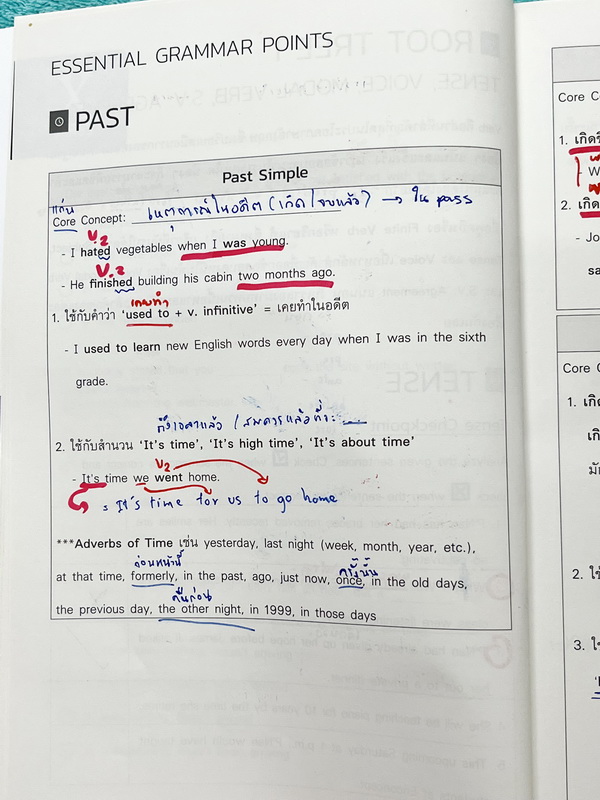 ESSENTIAL GRAMMAR POINTS
PAST
Past Simple
แก่น
Core Concept: เหตุการณ์ในอดีต (เกิด/จบแล้ว) → ใน pass
V.2
- I hated vegetables when I was young.
V.2
- He finished building his cabin two months ago.
เคยทำ
1. ใช้กับคำว่า 'used to + v. infinitive' = เคยทำในอดีต
- I used to learn new English words every day when I was in the sixth
grade.
ถึงเวลาแล้ว / สมควรแล้วที่จะ
2. ใช้กับสำนวน 'It's time', 'It's high time', 'It's about time'
V2
- It's time we went home.
= It's time for us to go home
***Adverbs of Time เช่น yesterday, last night (week, month, year, etc.),
ก่อนหน้านี้ ครั้งนั้น
at that time, formerly, in the past, ago, just now, once, in the old days,
คืนก่อน
the previous day, the other night, in 1999, in those days
Core C
1. เกิด
W
2. เกิด
- Jo
sa
Core C
1. เกิ
เกิ
2. ใช้
3. ใ